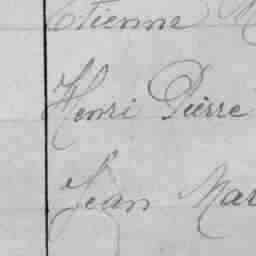 Etienne M
Henri Pierre
Jean Mar